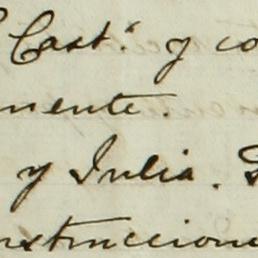 Cast.ª y co
nente.
y Julia.
nstruccione